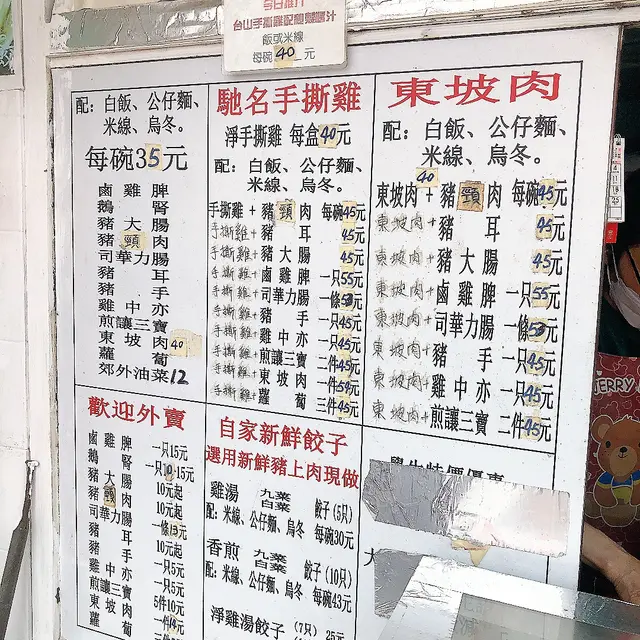 今日推介
台山手撕雞配憩雞醬汁
飯或米線
每碗40元
配：白飯、公仔麵、
米線、烏冬。
每碗35元
鹵雞脾
鵝腎
豬大腸
豬頸肉
司華力腸
豬耳
豬手
雞中亦
煎讓三寶
東坡肉40
蘿蔔
郊外油菜12
馳名手撕雞
淨手撕雞 每盒40元
配：白飯、公仔麵、
米線、烏冬。
手撕雞+豬頸肉 每碗45元
手撕雞+豬耳 45元
手撕雞+豬大腸 45元
手撕雞+鹵雞脾 一只55元
手撕雞+司華力腸 一條53元
手撕雞+豬手 一只45元
手撕雞+雞中亦 一只45元
手撕雞+煎讓三寶 二件45元
手撕雞+東坡肉 一件50元
手撕雞+蘿蔔 二件45元
東坡肉
配：白飯、公仔麵、
米線、烏冬。
40
東坡肉+豬頸肉 每碗45元
東坡肉+豬耳 45元
東坡肉+豬大腸 45元
東坡肉+鹵雞脾 一只55元
東坡肉+司華力腸 一條53元
東坡肉+豬手 一只45元
東坡肉+雞中亦 一只45元
東坡肉+煎讓三寶 二件45元
歡迎外賣
鹵雞脾 一只15元
鵝腎 一只10元
豬大腸 10元起
豬頸肉 10元起
司華力腸 一條13元
豬耳 10元起
豬手 一只5元
雞中亦 一只5元
煎讓三寶 5件10元
東坡肉
蘿蔔
自家新鮮餃子
選用新鮮豬上肉現做
雞湯 九菜 白菜 餃子(5只)
配：米線、公仔麵、烏冬 每碗30元
香煎 九菜 白菜 餃子(10只)
配：米線、公仔麵、烏冬 每碗43元
淨雞湯餃子 (7只) 25元
JERRY